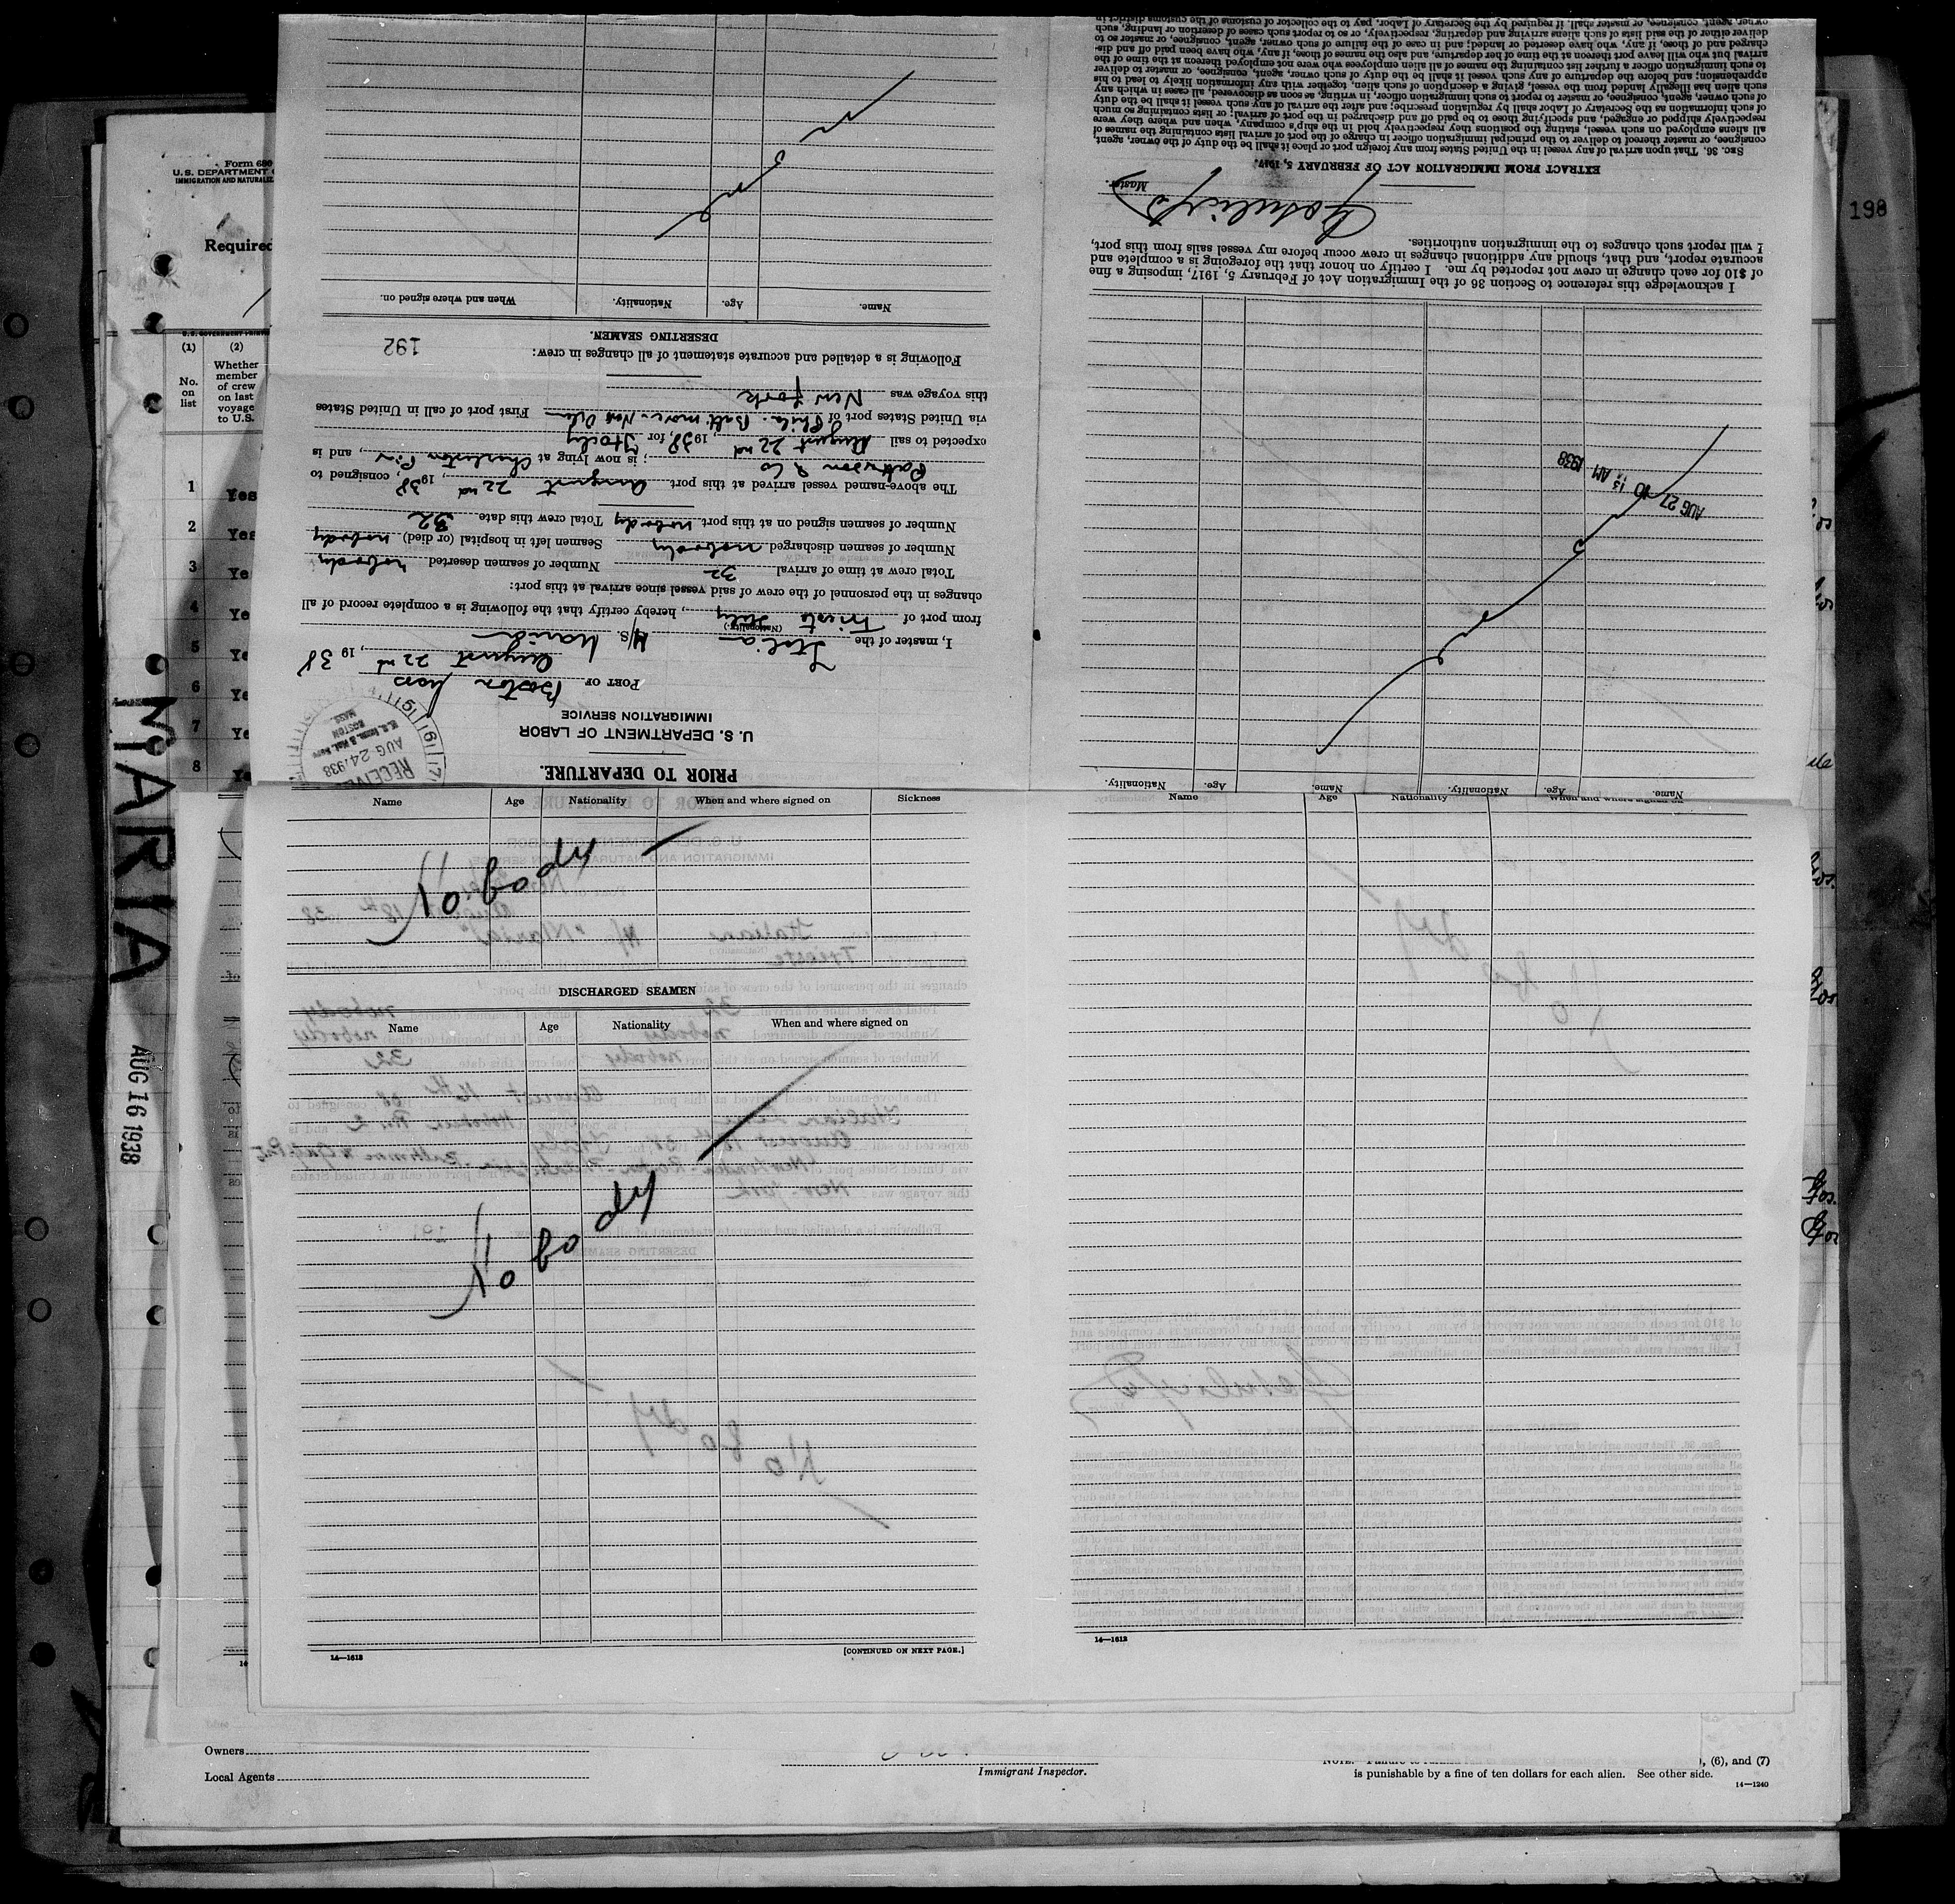 198
Form 680
U.S. DEPARTMENT
IMMIGRATION AND NATURALIZ
Required
(1) (2)
No. on list
Whether member of crew on last voyage to U.S.
1 Yes
2 Yes
3 Ye
4 Ye
5 Ye
6 Ye
7 Ye
8 Ya
MARIA
AUG 16 1938
PRIOR TO DEPARTURE.
U. S. DEPARTMENT OF LABOR
IMMIGRATION SERVICE
RECEIVED
AUG 24 1938
BOSTON
MASS.
PORT OF Boston Mass
August 22nd, 1938
I, master of the Italian M/S. Maria
(Nationality.)
from port of Trieste Italy, hereby certify that the following is a complete record of all
changes in the personnel of the crew of said vessel since arrival at this port:
Total crew at time of arrival 32 Number of seamen deserted nobody
Number of seamen discharged nobody Seamen left in hospital (or died) nobody
Number of seamen signed on at this port nobody Total crew this date 32
The above-named vessel arrived at this port August 22nd, 1938, consigned to
Patterson & Co; is now lying at Charleston Pier, and is
expected to sail August 22nd, 1938, for Italy
via United States port of Phila. Baltimore. New Orle First port of call in United States
this voyage was New York
Following is a detailed and accurate statement of all changes in crew:
192
DESERTING SEAMEN.
Name. Age. Nationality. When and where signed on.
Name. Age. Nationality. Name. Age. Nationality.
AUG 27 10 13 AM 1938
I acknowledge this reference to Section 36 of the Immigration Act of February 5, 1917, imposing a fine
of $10 for each change in crew not reported by me. I certify on honor that the foregoing is a complete and
accurate report, and that, should any additional changes in crew occur before my vessel sails from this port,
I will report such changes to the immigration authorities.
Master.
EXTRACT FROM IMMIGRATION ACT OF FEBRUARY 5, 1917.
SEC. 36. That upon arrival of any vessel in the United States from any foreign port or place it shall be the duty of the owner, agent,
consignee, or master thereof to deliver to the principal immigration officer in charge of the port of arrival lists containing the names of
all aliens employed on such vessel, stating the positions they respectively hold in the ship's company, when and where they were
respectively shipped or engaged, and specifying those to be paid off and discharged in the port of arrival; or lists containing so much
of such information as the Secretary of Labor shall by regulation prescribe; and after the arrival of any such vessel it shall be the duty
of such owner, agent, consignee, or master to report to such immigration officer, in writing, as soon as discovered, all cases in which any
such alien has illegally landed from the vessel, giving a description of such alien, together with any information likely to lead to his
apprehension; and before the departure of any such vessel it shall be the duty of such owner, agent, consignee, or master to deliver
to such immigration officer a further list containing the names of all alien employees who were not employed thereon at the time of the
arrival but who will leave port thereon at the time of her departure, and also the names of those, if any, who have been paid off and dis-
charged and of those, if any, who have deserted or landed; and in case of the failure of such owner, agent, consignee, or master so to
deliver either of the said lists of such aliens arriving and departing, respectively, or so to report such cases of desertion or landing, such
owner, agent, consignee, or master shall, if required by the Secretary of Labor, pay to the collector of customs of the customs district in
Name Age Nationality When and where signed on Sickness
Nobody
DISCHARGED SEAMEN
Name Age Nationality When and where signed on
Nobody
14—1612 [CONTINUED ON NEXT PAGE.]
Name Age Nationality When and where signed on
14—1612
Owners
Local Agents
Immigrant Inspector.
, (6), and (7)
is punishable by a fine of ten dollars for each alien. See other side.
14—1240